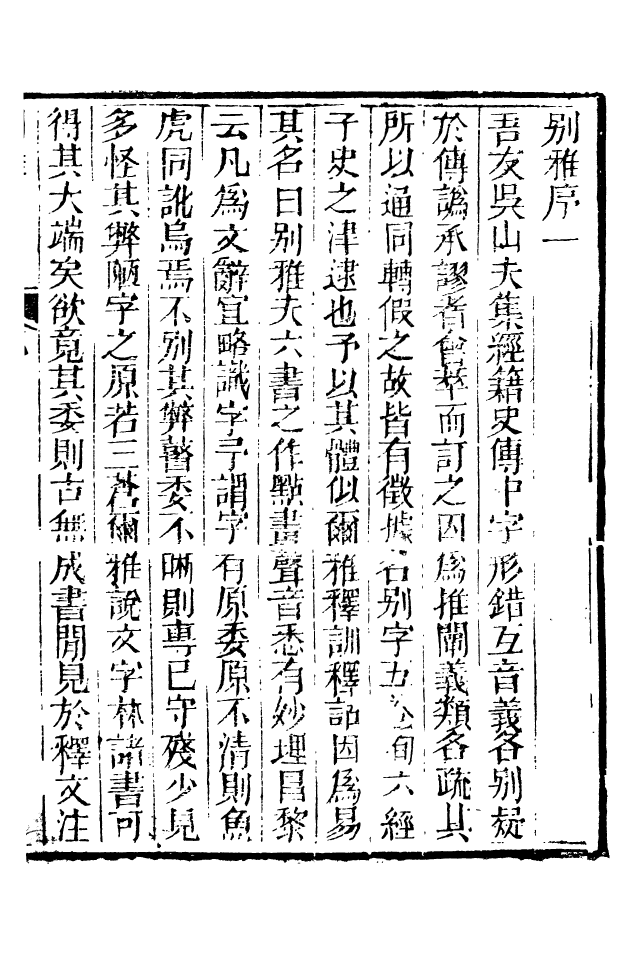 别雅序一
吾友吳山夫集經籍史傳中字形錯互音義各别疑
於傳譌承謬者會萃而訂之因爲推闡義類各疏其
所以通同轉假之故皆有徵據名别字五卷洵六經
子史之津逮也予以其體似爾雅釋訓釋詁因爲易
其名曰别雅夫六書之作點畫聲音悉有妙理昌黎
云凡爲文辭宜略識字予謂字有原委原不清則魚
虎同訛烏焉不别其弊瞀委不暢則專己守殘少見
多怪其弊陋字之原若三蒼爾雅說文字林諸書可
得其大端矣欲竟其委則古無成書閒見於釋文注